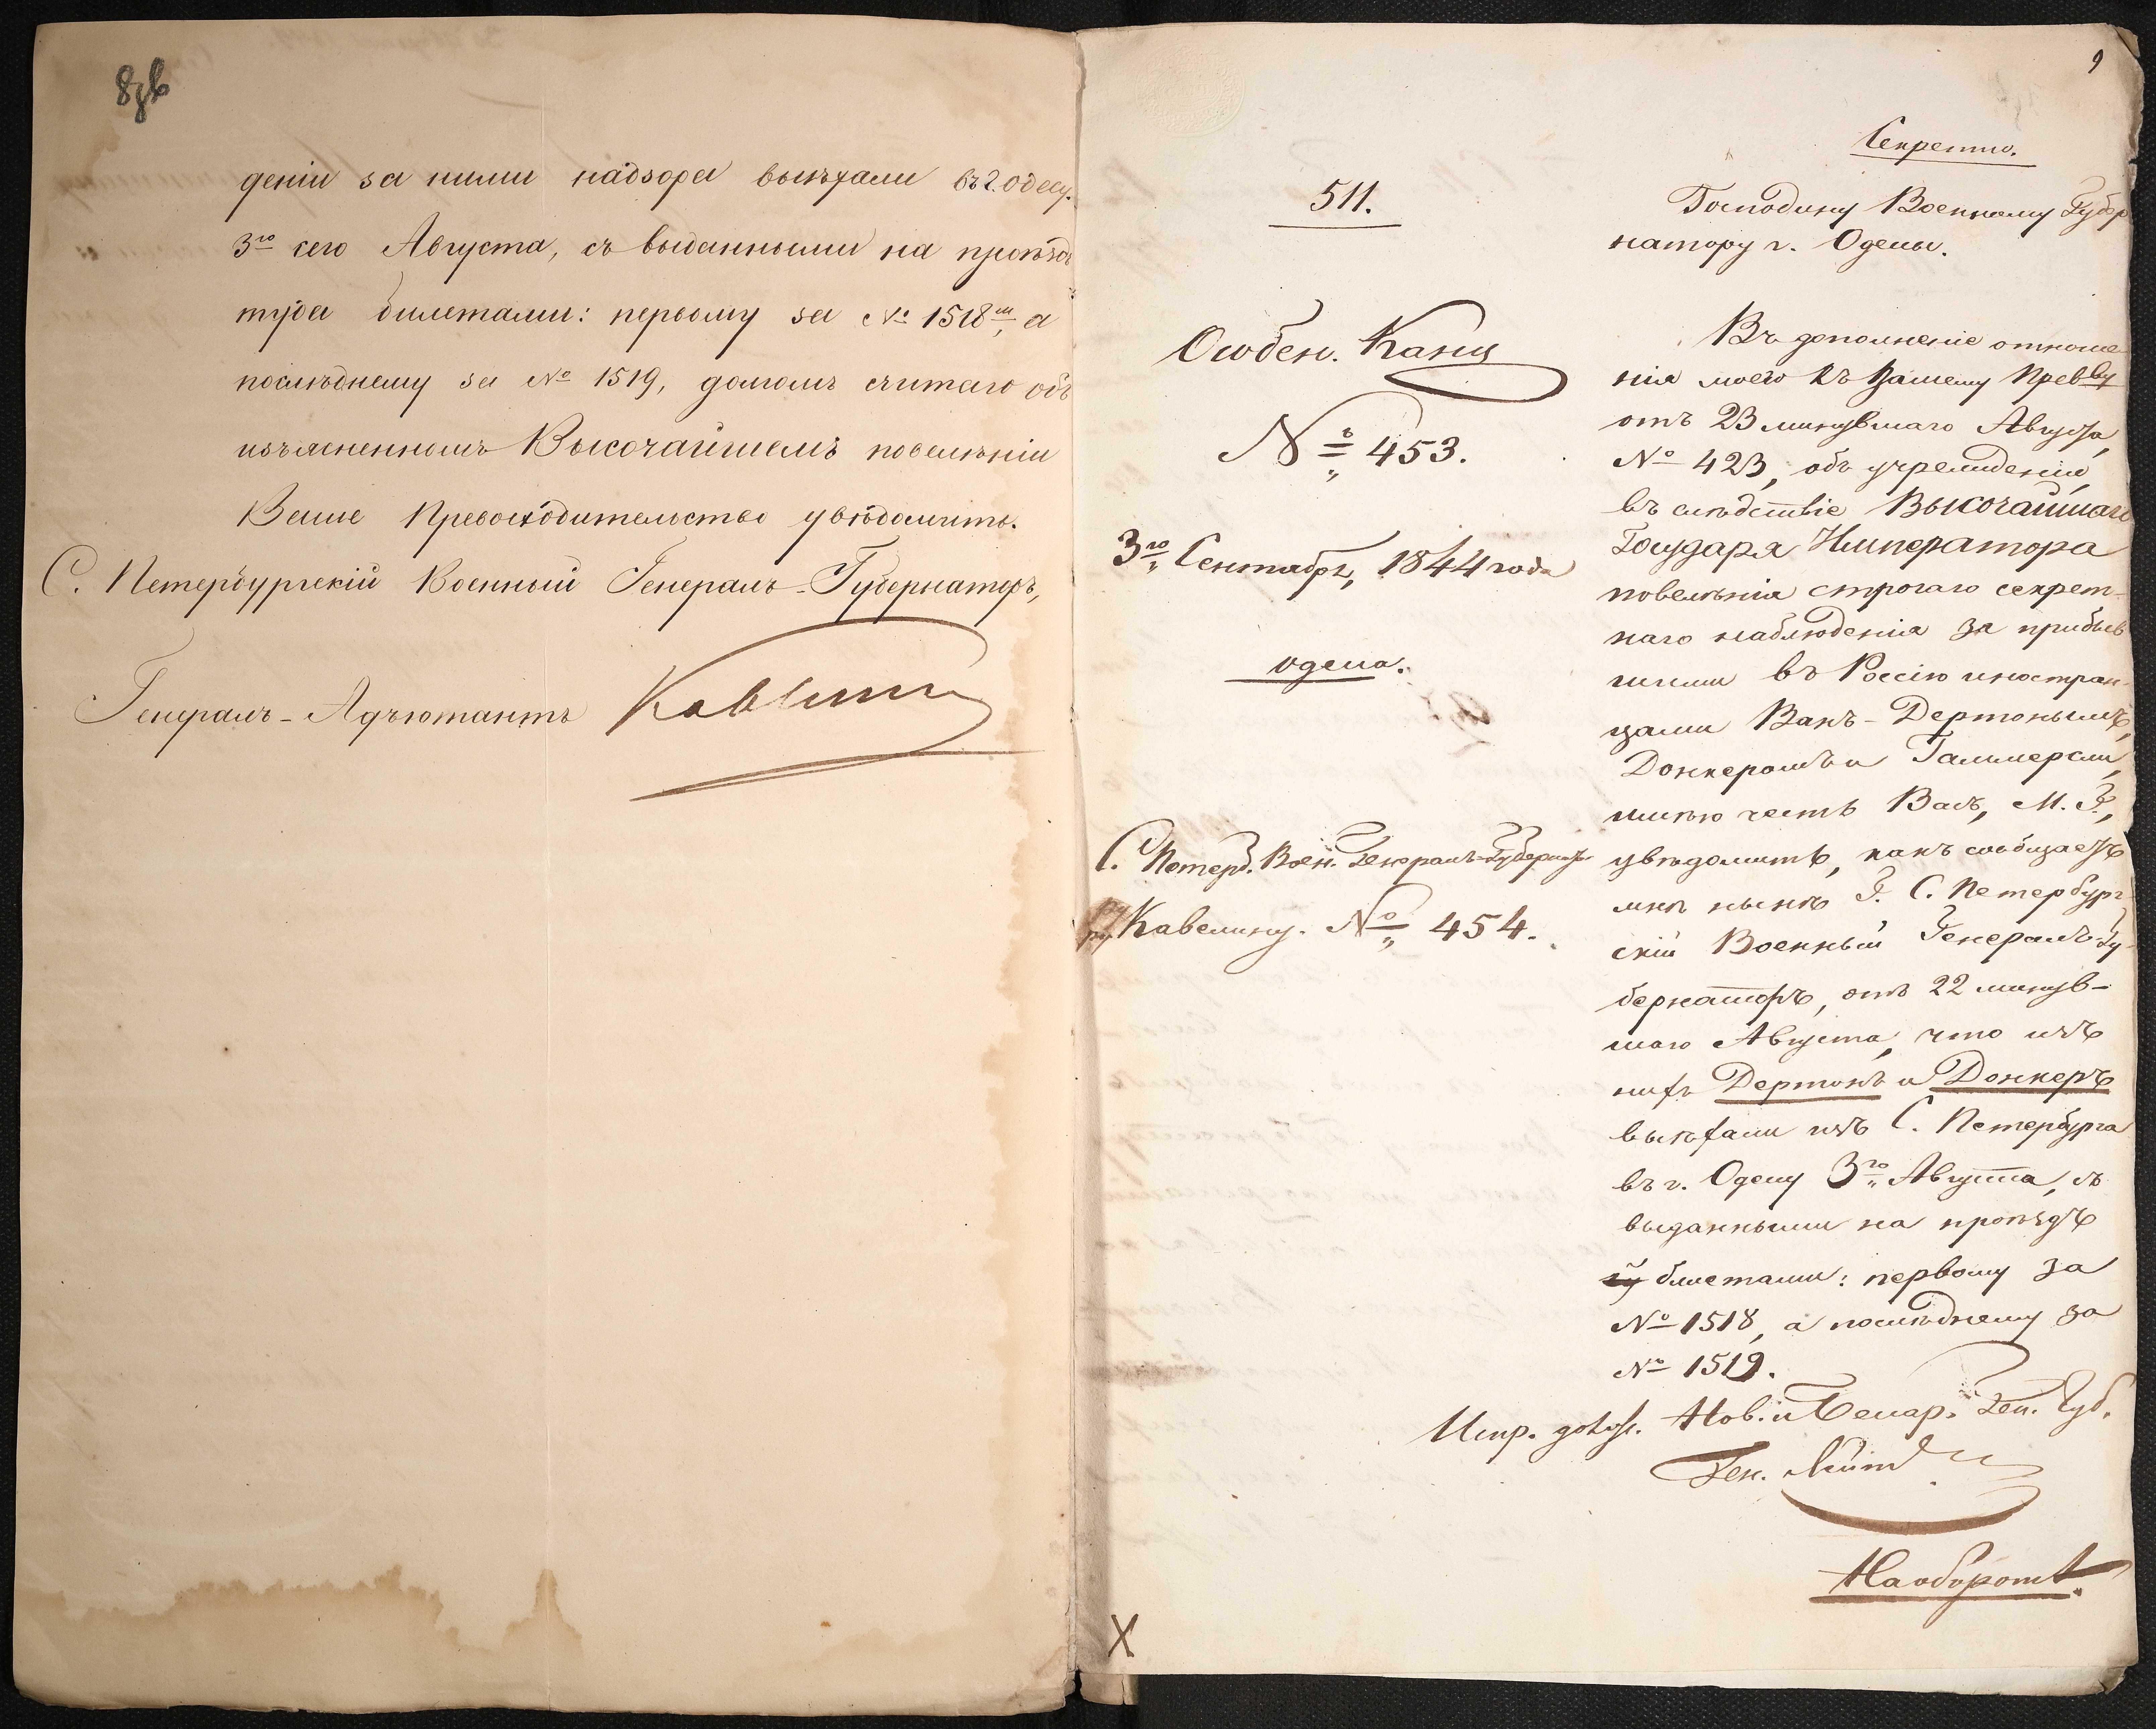 8об
деніи за ними надзора выѣхали въ г. Одессу.
3го сего Августа, съ выданными на проѣздъ
туда билетами: первому за № 1518м, а
послѣднему за № 1519, долгомъ считаю объ
изъясненномъ Высочайшемъ повелѣніи
Ваше Превосходительство увѣдомить.
С. Петербургскій Военный Генералъ-Губернаторъ,
Генералъ-Адъютантъ Кавелинъ
9
Секретно.
511.
Господину Военному Губер
натору г. Одессы.
Особен. Канц
№ 453.
3го Сентября, 1844 года
Одесса.
С. Петерб. Воен. Генералъ-Губернато
ру Кавелину. № 454.
Въ дополненіе отноше
нія моего къ Вашему Превву
отъ 23 минувшаго Августа,
№ 423, объ учрежденіи,
въ слѣдствіе Высочайшаго
Государя Императора
повелѣнія строгаго секрет-
наго наблюденія за прибыв
шими въ Россію иностран-
цами Ванъ-Дертонымъ,
Донкеромъ и Гаммерсли,
имѣю честь Васъ, М. Г.,
увѣдомить, какъ сообщаетъ
мнѣ нынѣ Г. С. Петербург-
скій Военный Генералъ-Гу-
бернаторъ, отъ 22 минув-
шаго Августа, что изъ
нихъ Дертонъ и Донкеръ
выѣхали изъ С. Петербурга
въ г. Одессу 3го Августа, съ
выданными на проѣздъ
билетами: первому за
№ 1518, а послѣднему за
№ 1519.
Испр. должн. Нов. и Бессар. Ген. Губ.
Ген. Лейт
На оборотѣ.
X